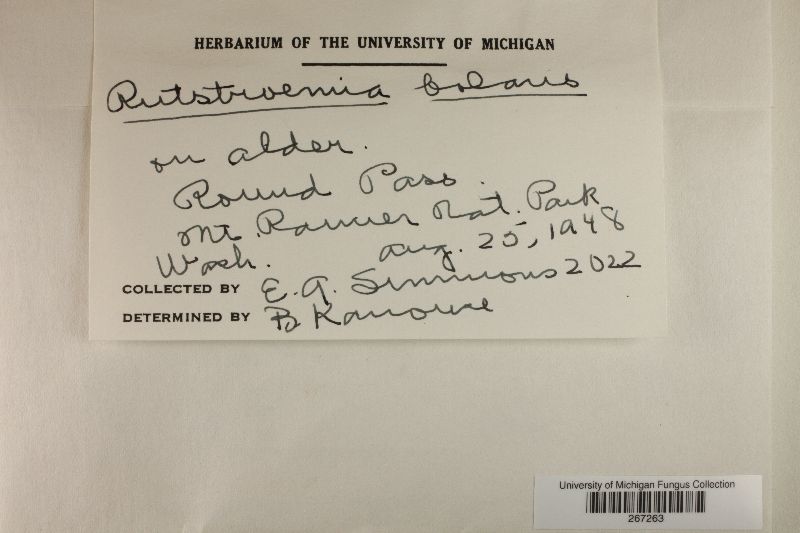 HERBARIUM OF THE UNIVERSITY OF MICHIGAN
Rutstroemia bolaris
on alder.
Round Pass.
Mt. Rainier Nat. Park
Wash. Aug. 25, 1948
COLLECTED BY E. G. Simmons 2022
DETERMINED BY B Kanouse
University of Michigan Fungus Collection
267263